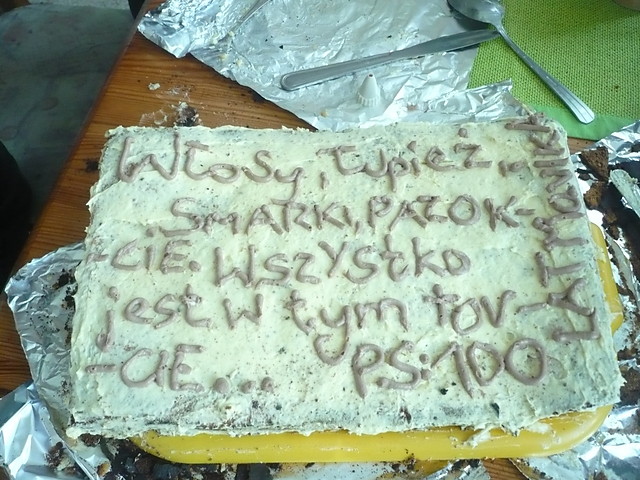 Włosy, łupież,
SMARKI, PAZOK-
-CiE. Wszystko
jest w tym toV-
-CIE... P.S: 100
LAT MONIKA